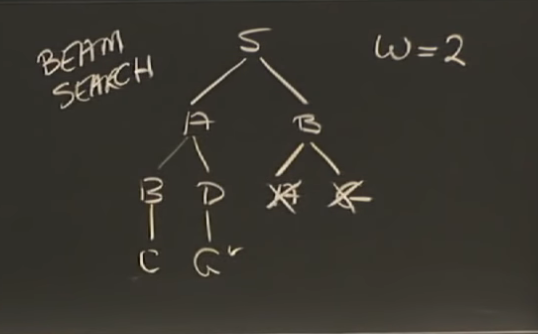 BEAM
SEARCH
S
W=2
A
B
B
D
A
C
C
G